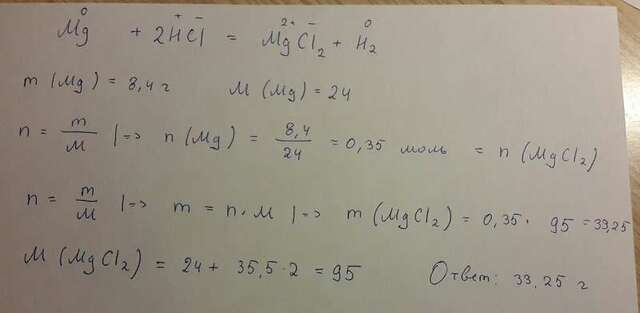 Mg⁰ + 2H⁺Cl⁻ = Mg²⁺Cl₂⁻ + H₂⁰
m (Mg) = 8,4 г M (Mg) = 24
n = m/M |=> n (Mg) = 8,4/24 = 0,35 моль = n (MgCl₂)
n = m/M |=> m = n · M |=> m (MgCl₂) = 0,35 · 95 = 33,25
M (MgCl₂) = 24 + 35,5 · 2 = 95 Ответ: 33,25 г